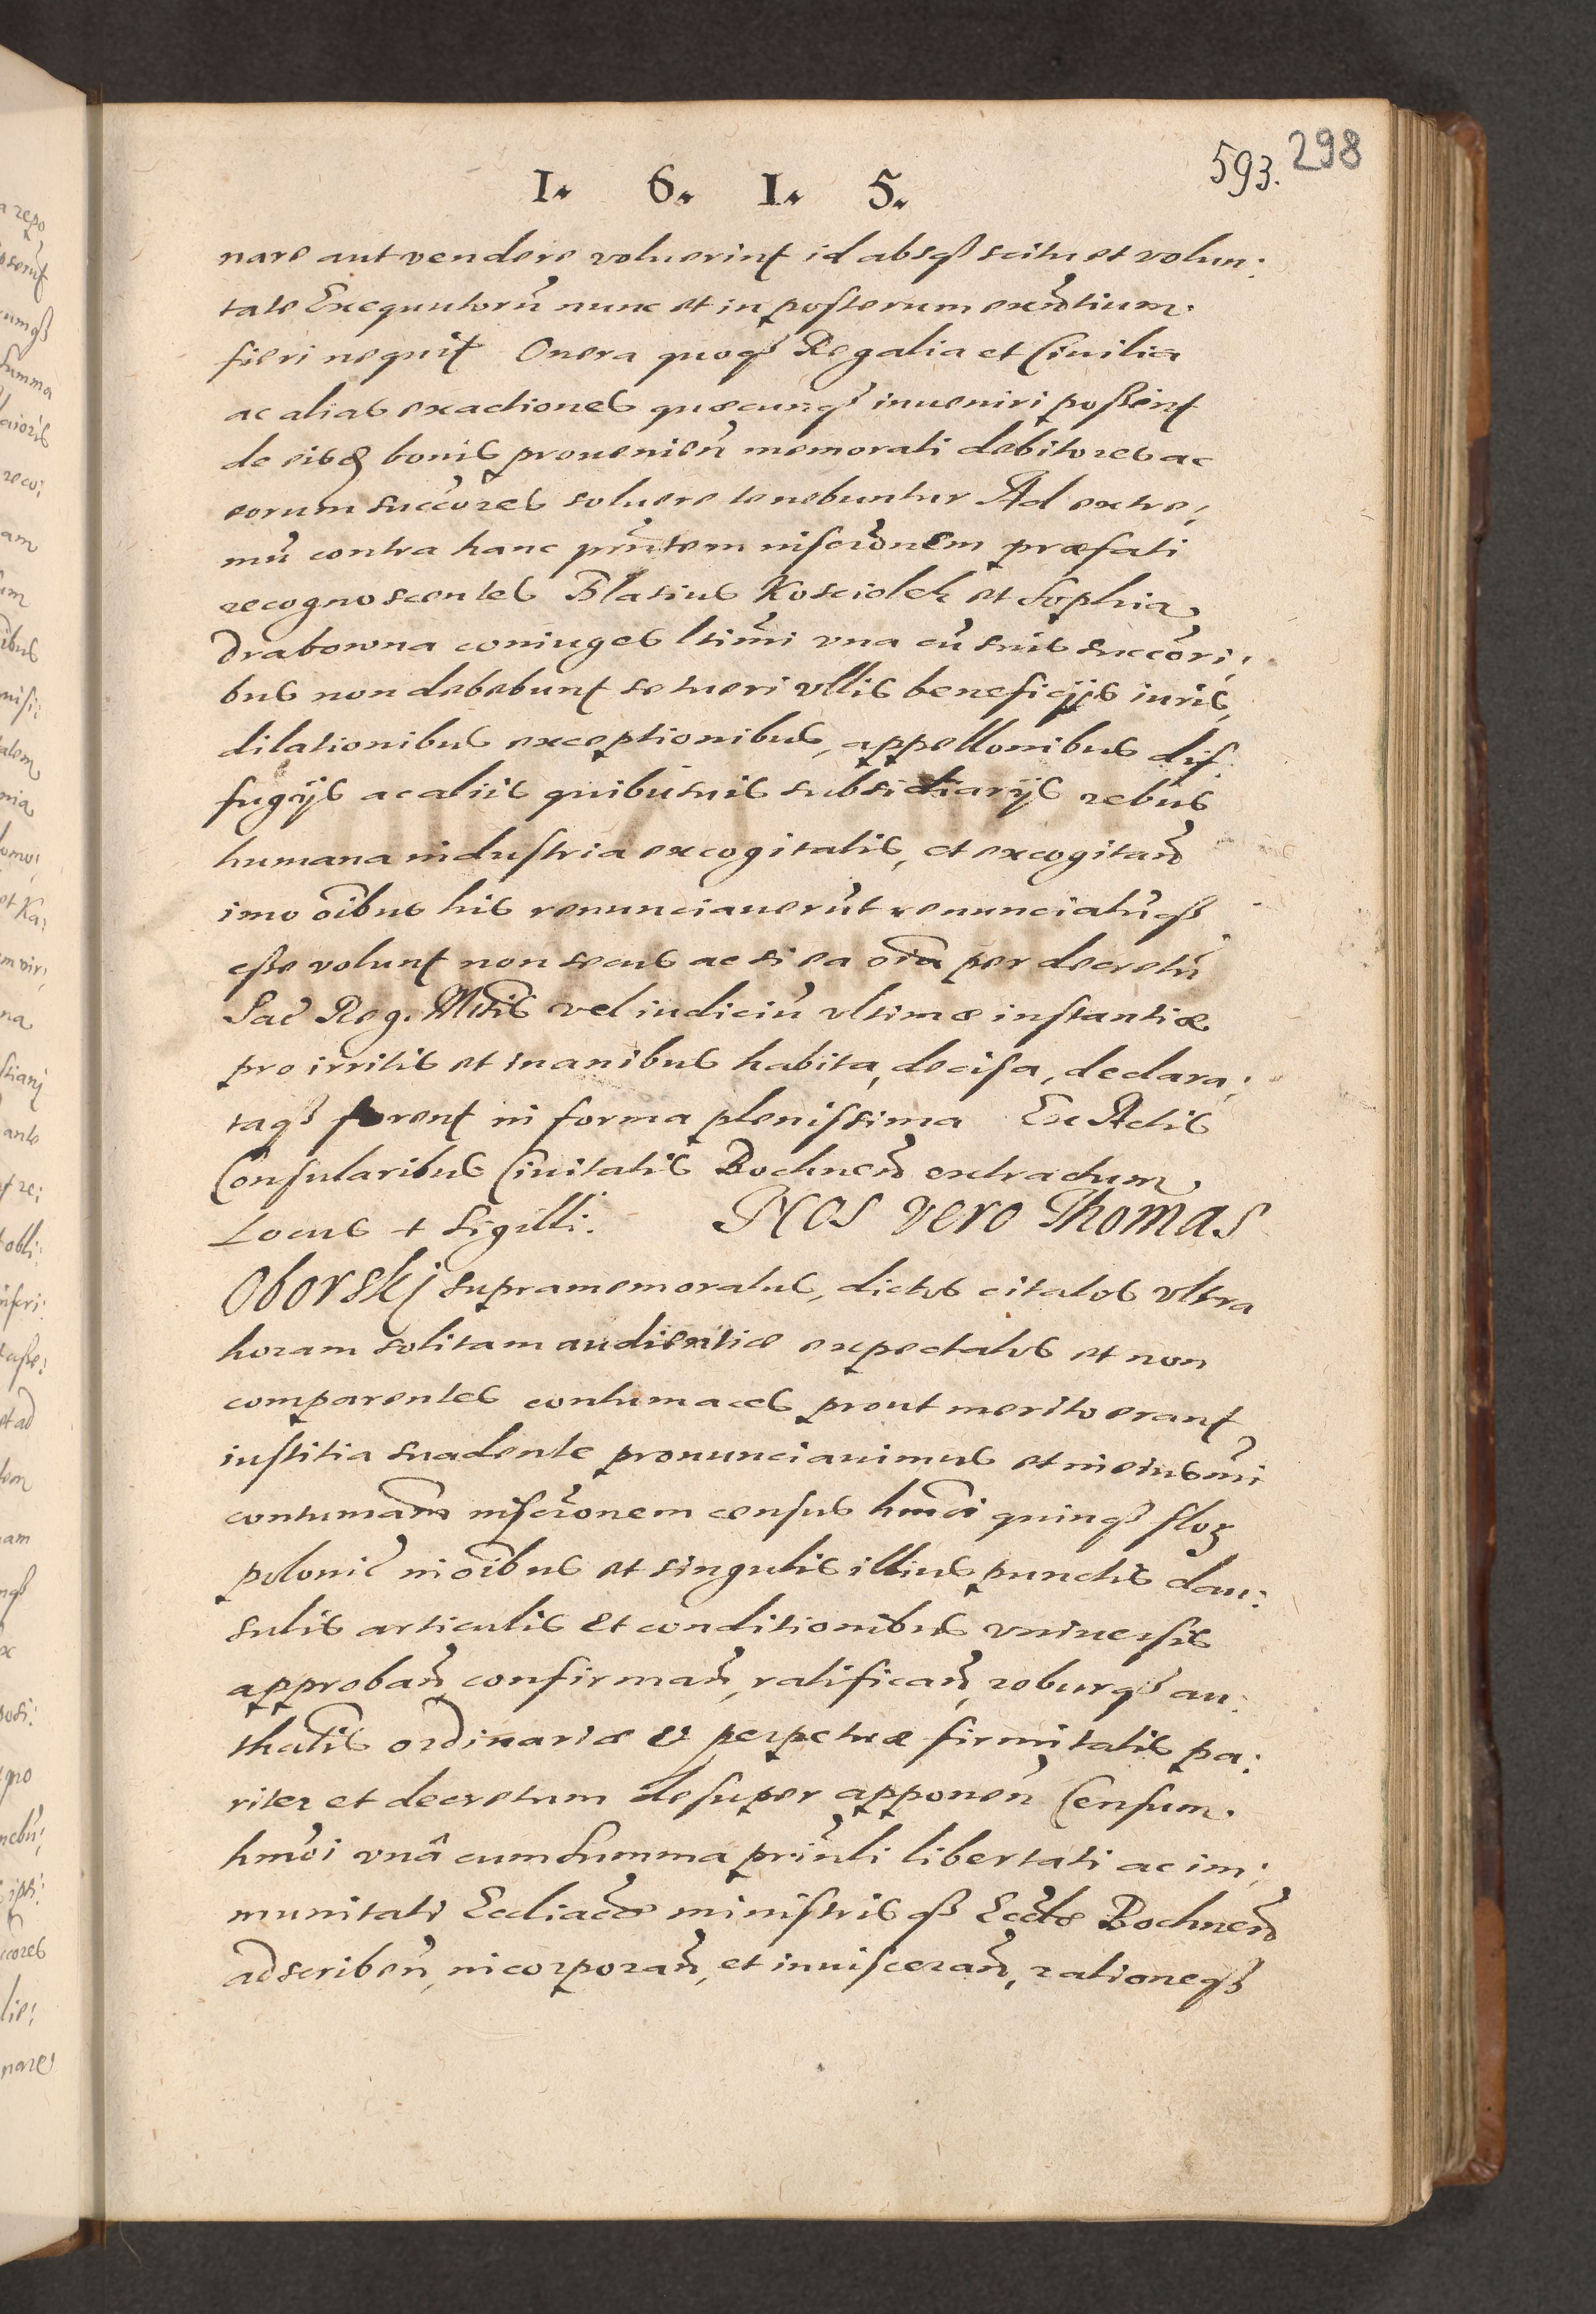 593. 298
1. 6. 1. 5.
nare aut vendere voluerint id absqꝫ scitu et volun:
tate Exequutorũ nunc et in posterum exñtium.
fieri nequit Onera quoqꝫ Regalia et Ciuilia
ac alias exactiones quæcunqꝫ inueniri possent
de eisd bonis prouenieñ memorati debitores ac
eorum succõres soluere tenebuntur Ad extre:
mũ contra hanc pñtem inscrõnem præfati
recognoscentes Blasius Kosciolek et Sophia
Drabowna coniuges ltimi vna cũ suis succõri:
bus non debebunt se tueri vllis beneficijs iuris,
dilationibus exceptionibus, appellonibus dif
fugijs ac aliis quibusuis subsidiarijs rebus
humana industria excogitatis, et excogitañ
imo oĩbus his renunciauerũt renunciatũqꝫ
esse volunt non secus ac si ea oĩa per decretũ
Sac Reg. Mttis vel iudiciũ vltimæ instantiæ
pro irritis et inanibus habita, decisa, declara:
taqꝫ forent in forma plenissima Ex Actis
Consularibus Ciuitatis Bochneñ extractum.
Locus + Sigilli. Nos vero Thomas
Oborskj supramemoratus, dictos citatos vltra
horam solitam audientiæ expectatos et non
comparentes contumaces prout merito erant
iustitia suadente pronunciauimus et in eiusmi
contumam inscrõnem census hmõi quinqꝫ floꝝ
polonic in oĩbus et singulis illius punctis clau:
sulis articulis et conditionibus vniuersis
approbañ, confirmañ, ratificañ, roburqꝫ au:
thatis ordinariæ et perpetuæ firmitatis pa:
riter et decretum desuper apponeñ Censum.
hmõi vnâ cum summa prinli libertati ac im:
munitati Eccliacæ ministrisqꝫ Eccłæ Bochneñ
adscribeñ, incorporañ, et inuisceran̄, rationeqꝫ